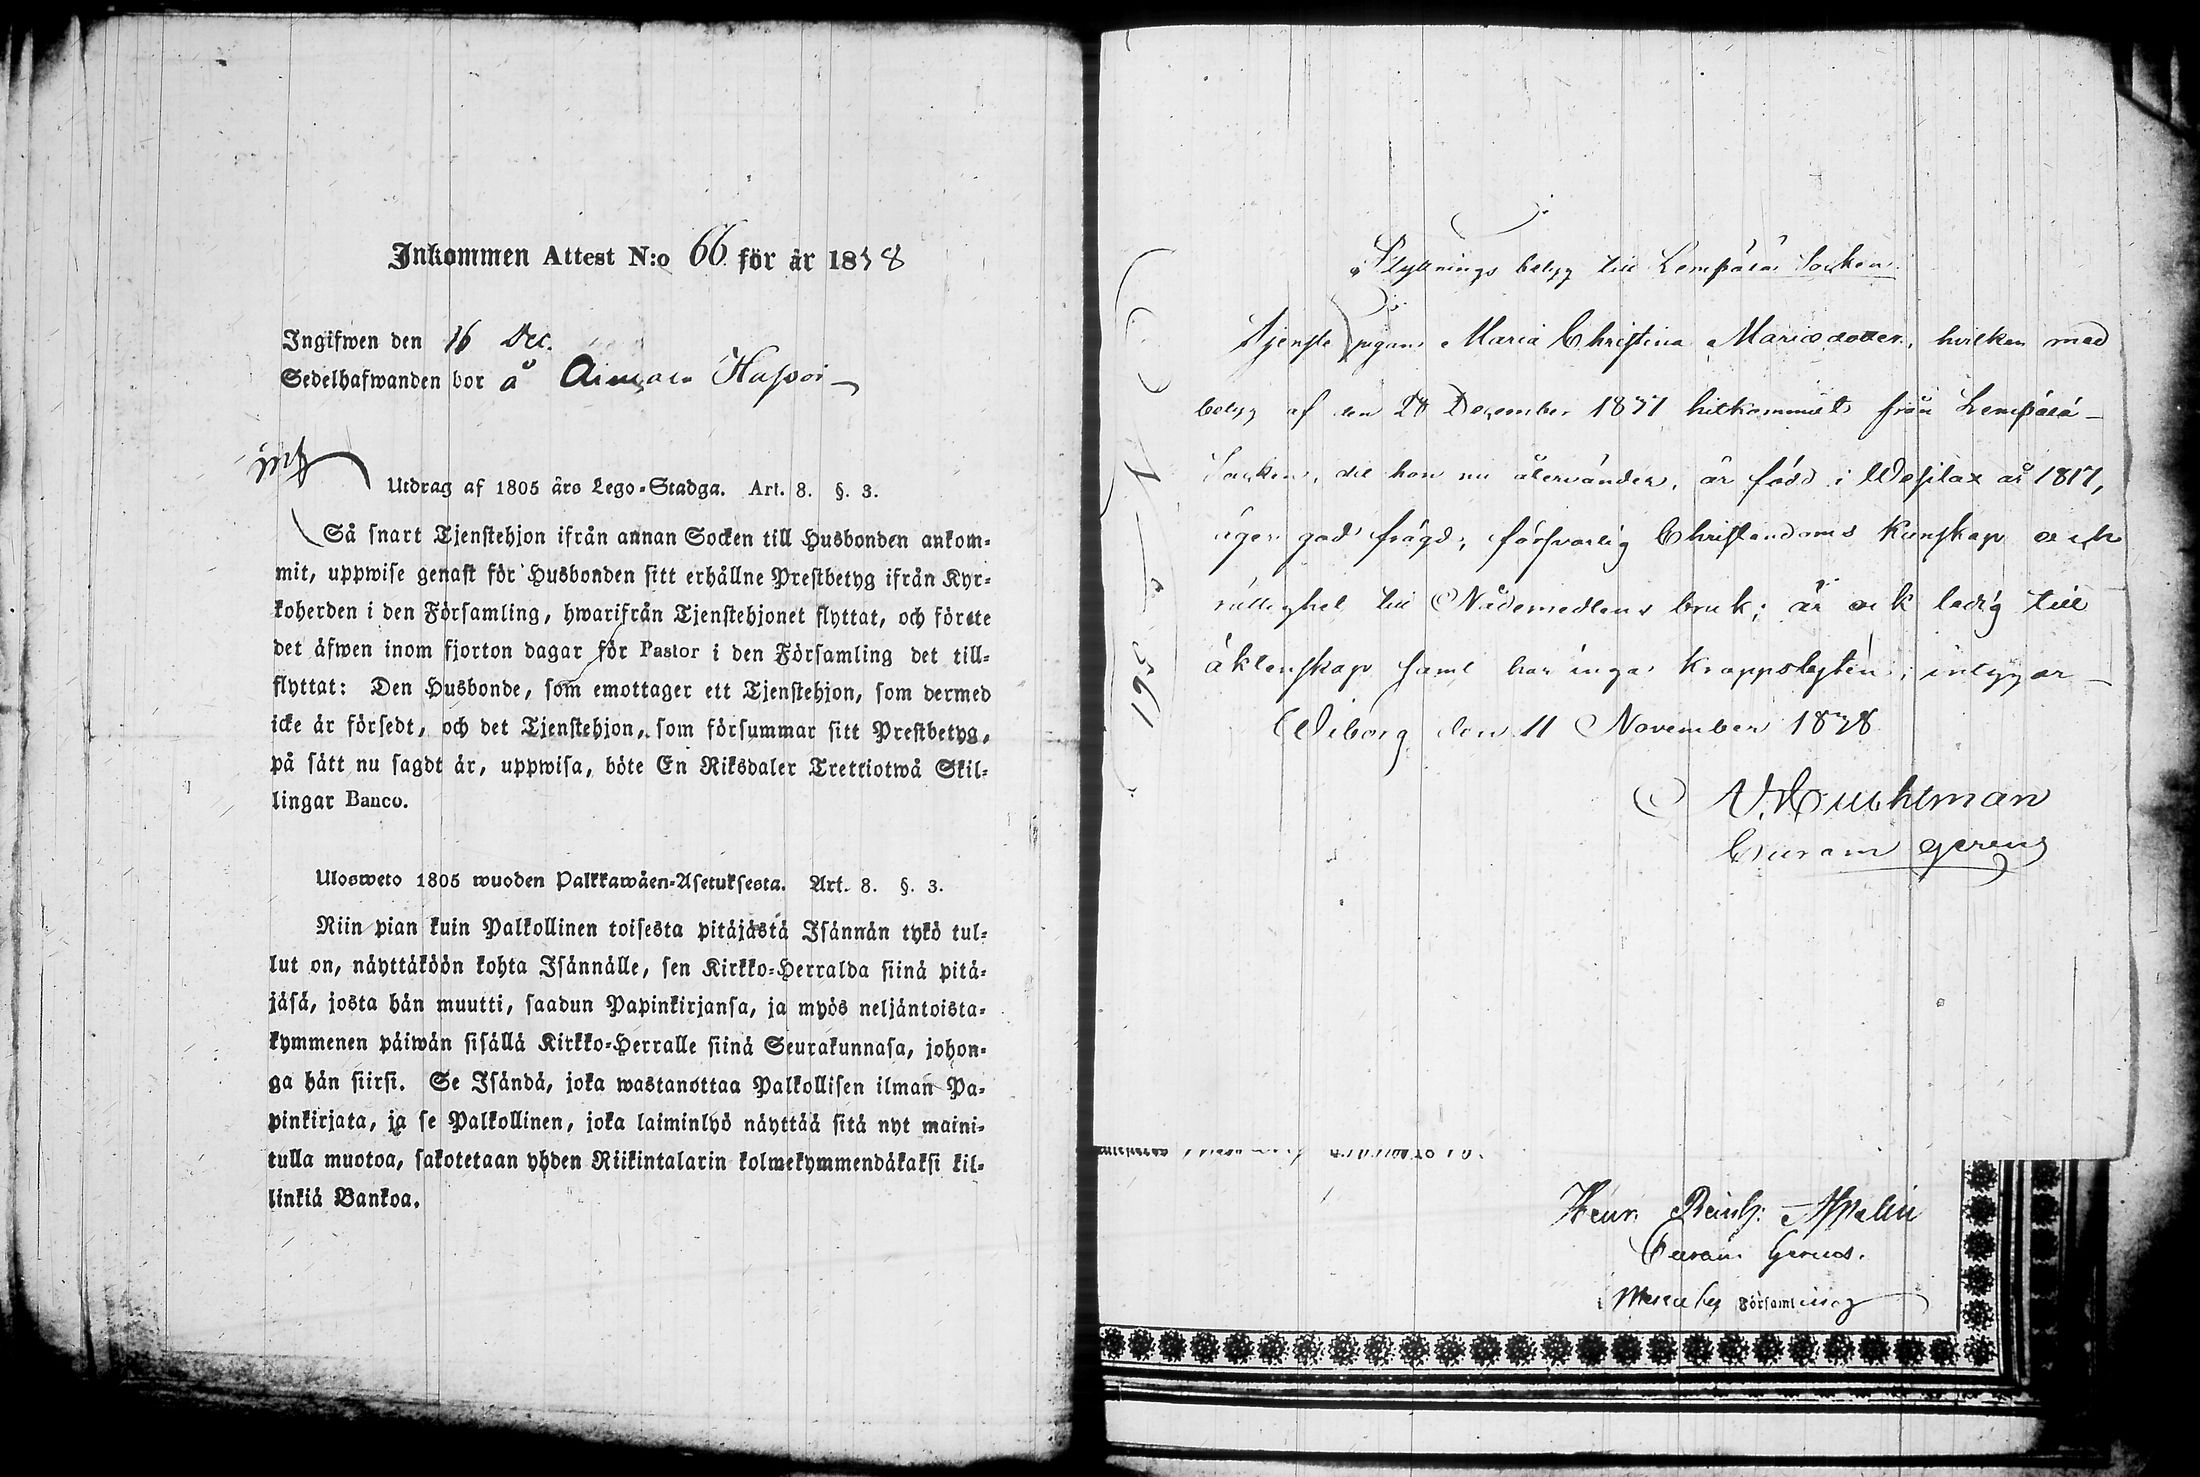 Inkommen Attest N:o 66 för år 1838
Ingifwen den 16 Dec.
Sedelhafwanden bor å
Utdrag af 1805 års Lego-Stadga. Art. 8. §. 3.
Så snart Tjenstehjon ifrån annan Socken till Husbonden ankom-
mit, uppwise genast för Husbonden sitt erhållne Prestbetyg ifrån Kyr-
koherden i den Församling, hwarifrån Tjenstehjonet flyttat, och förete
det äfwen inom fjorton dagar för Pastor i den Församling det till-
flyttat: Den Husbonde, som emottager ett Tjenstehjon, som dermed
icke är försedt, och det Tjenstehjon, som försummar sitt Prestbetyg,
på sätt nu sagdt är, uppwisa, böte En Riksdaler Trettiotwå Skil-
lingar Banco.
Ulosweto 1805 wuoden Palkkawäen-Asetuksesta. Art. 8. §. 3.
Niin pian kuin Palkollinen toisesta pitäjästä Isännän tykö tul-
lut on, näyttäköön kohta Isännälle, sen Kirkko-Herralda siinä pitä-
jäsä, josta hän muutti, saadun Papinkirjansa, ja myös neljäntoista-
kymmenen päiwän sisällä Kirkko-Herralle siinä Seurakunnasa, johon-
ga hän siirsi. Se Isändä, joka wastanottaa Palkollisen ilman Pa-
pinkirjata, ja se Palkollinen, joka laiminlyö näyttää sitä nyt maini-
tulla muotoa, sakotetaan yhden Riikintalarin kolmekymmendäkaksi kil-
linkiä Bankoa.
Flyttnings betyg till Lempälä Socken
Tjenste pigan Maria Christina Mariædotter, hvilken med
betyg af den 28 December 1837 hitkommit från Lempälä
Socken, dit hon nu återvänder, är född i Wesilax år 1817,
äger god frägd, försvarlig Christendoms Kunskap och
rättighet till Nådemedlens bruk; är ock ledig till
äktenskap samt har inga kroppslyten, intygar
Wiborg den 11 November 1838
Curam gerens
Curam Gerens.
i församling